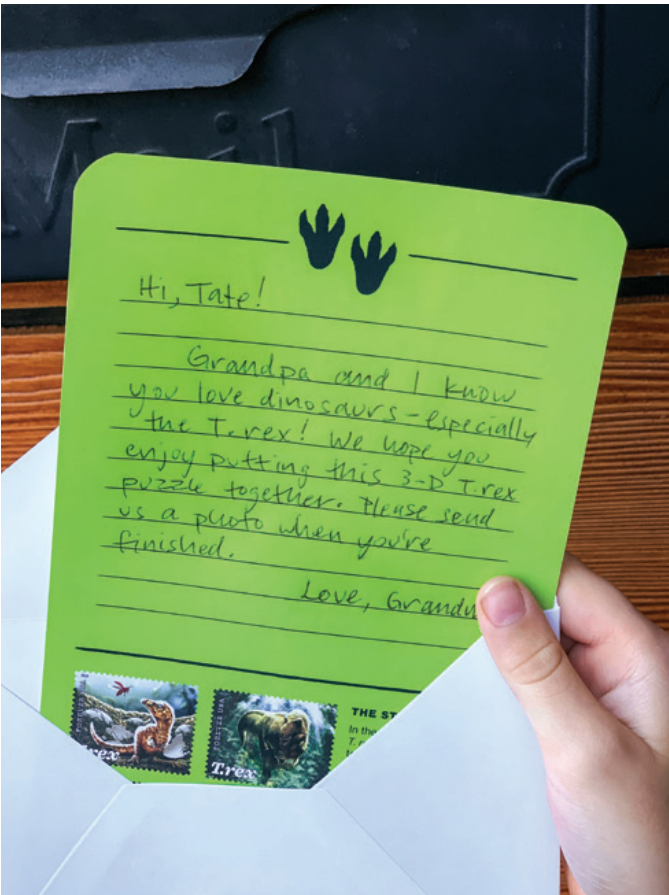 Mail
Hi, Tate!
Grandpa and I know
you love dinosaurs - especially
the T.rex! We hope you
enjoy putting this 3-D T.rex
puzzle together. Please send
us a photo when you're
finished.
Love,
FOREVER USA
T.rex
FOREVER USA
T.rex
THE ST
In the
T.